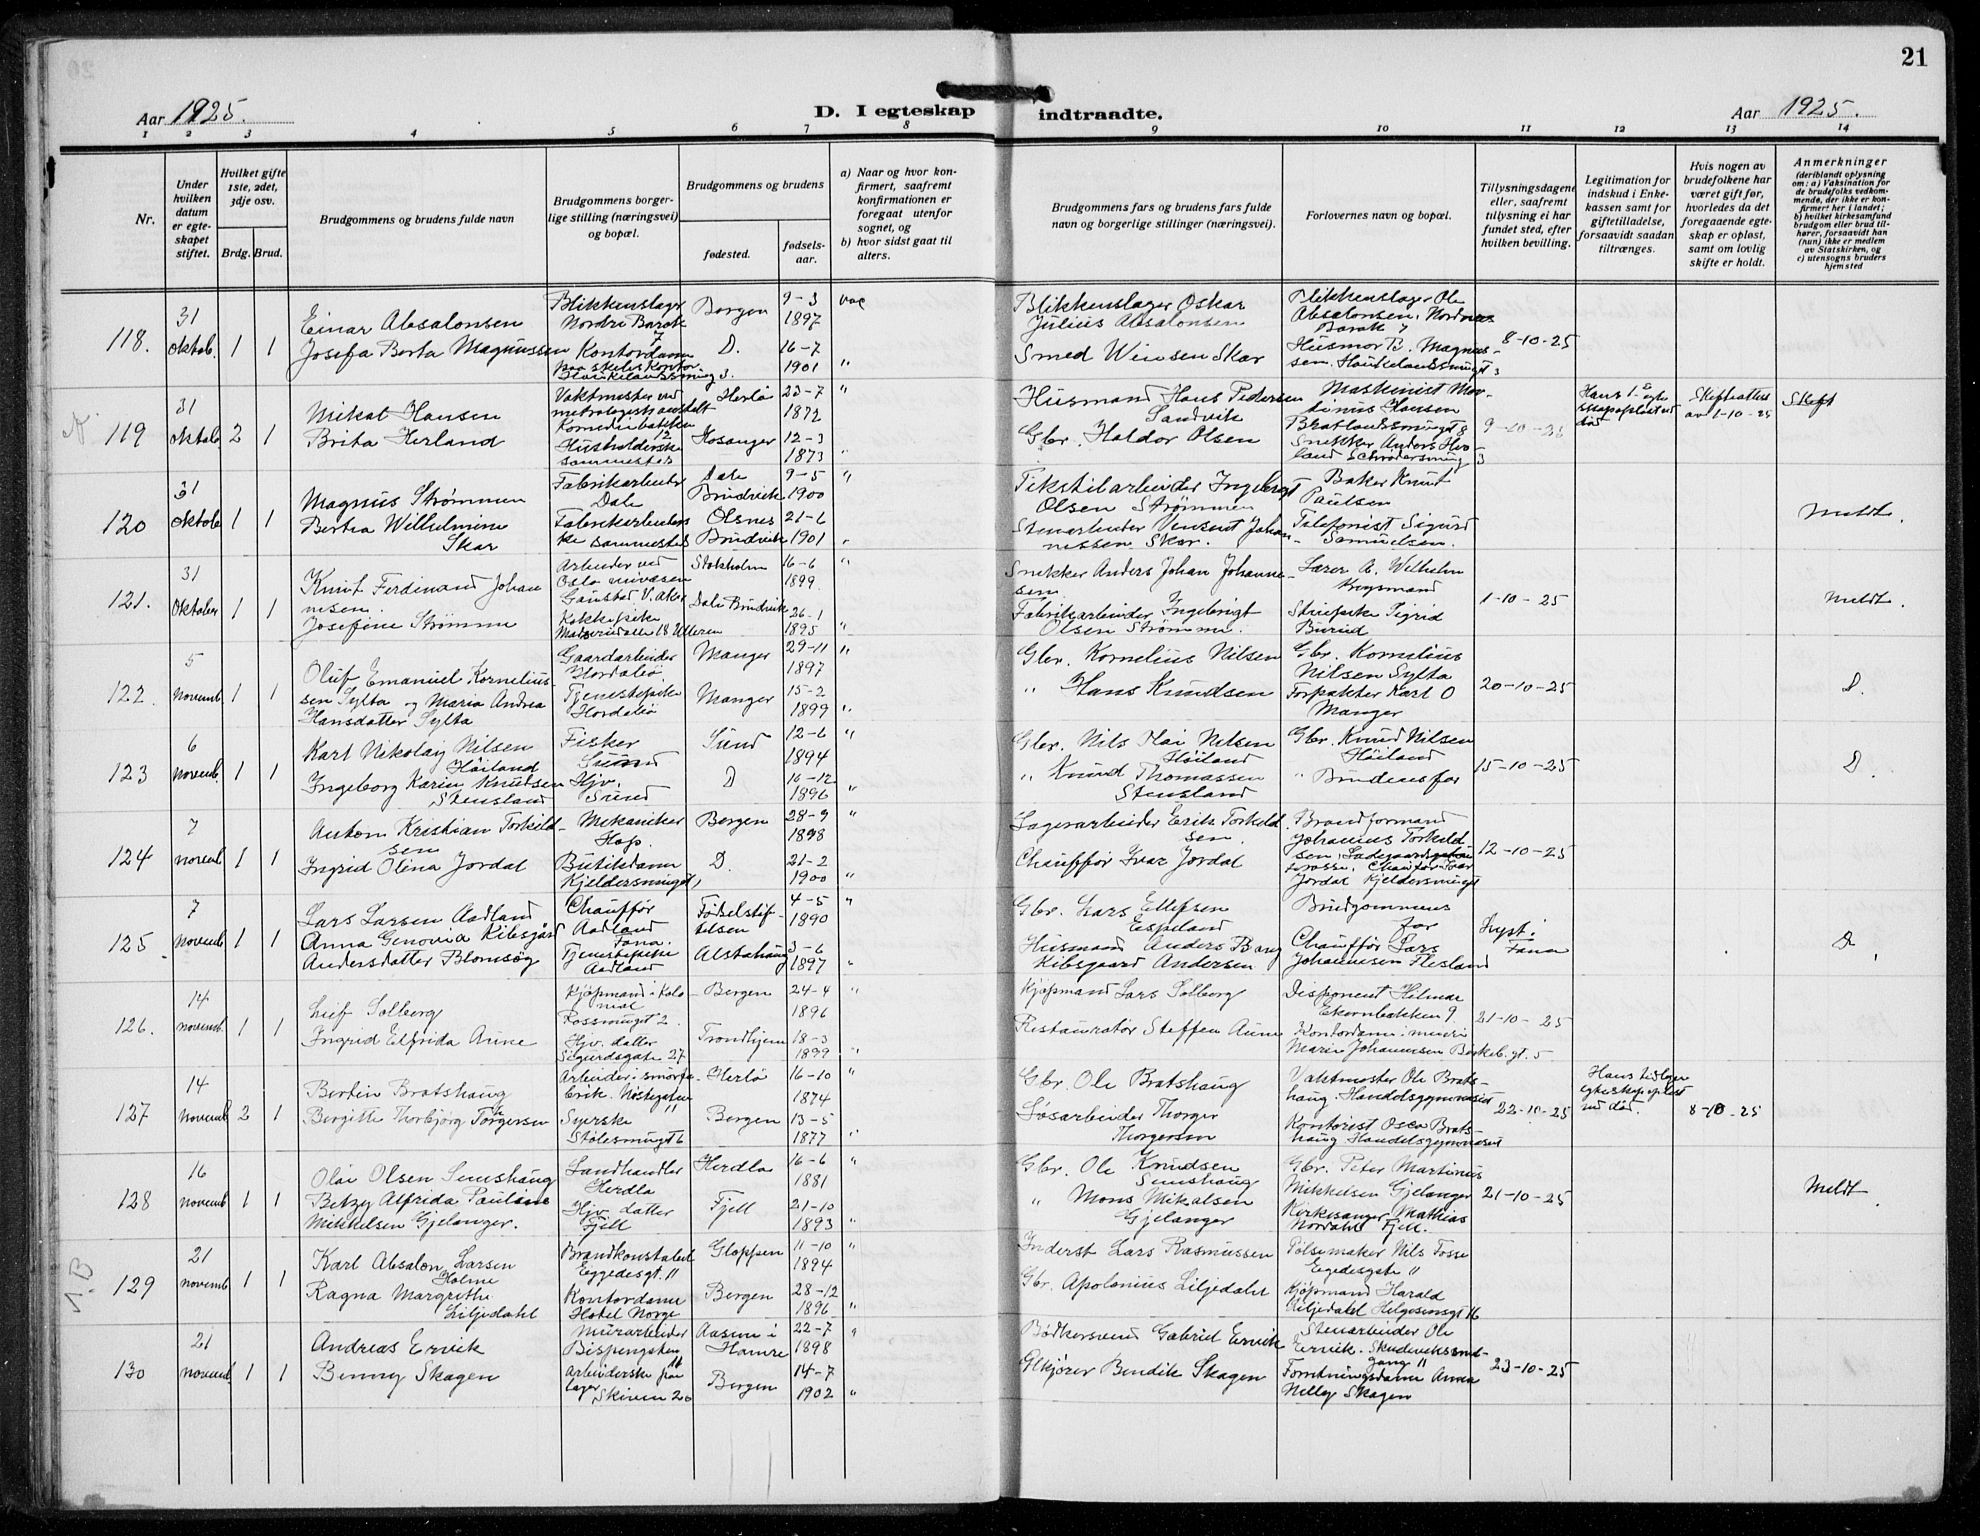 21
Aar 1925.
D. I egteskap indtraadte.
Aar 1925.
1 2 3 4 5 6 7 8 9 10 11 12 13 14
Nr.
Under hvilken datum er egteskapet stiftet.
Hvilket gifte 1ste, 2det, 3dje osv.
Brdg. Brud.
Brudgommens og brudens fulde navn
Brudgommens borgerlige stilling (næringsvei) og bopæl.
Brudgommens og brudens
fødested.
fødselsaar.
a) Naar og hvor konfirmert, saafremt konfirmationen er foregaat utenfor sognet, og
b) hvor sidst gaat til alters.
Brudgommens fars og brudens fars fulde navn og borgerlige stillinger (næringsvei).
Forlovernes navn og bopæl.
Tillysningsdagene eller, saafremt tillysning ei har fundet sted, efter hvilken bevilling.
Legitimation for indskud i Enkekassen samt for giftetilladelse, forsaavidt saadan tiltrænges.
Hvis nogen av brudefolkene har været gift før, hvorledes da det foregaaende egteskap er opløst, samt om lovlig skifte er holdt.
Anmerkninger (deriblandt oplysning om: a) Vaksination for de brudefolks vedkommende, der ikke er konfirmert her i landet; b) hvilket kirkesamfund brudgom eller brud tilhører, forsaavidt han (hun) ikke er medlem av Statskirken, og c) utensogns bruders hjemsted
118. 31 Oktob. 1 1
Einar Absalonsen
Josefa Berta Magnussen
Blikkenslager
Nordre Barak 7
Kontordame
Bergen 9-3 1897
D. 16-7 1901 "
Blikkenslager Oskar
Julius Absalonsen
Smed Vinsen Skar
Blikkenslager Ole
Absalonsen, Nordnes
Barak 7
Husmor B. Magnussen.
8-10-25
119 31 Oktob. 2 1
Mikal Hansen
Brita Herland
Vaktmester ved
Komediebakken 12
Husholderske
sammesteds
Herlø 23-7 1872 "
Hosanger 12-3 1873 "
Husmand Hans Pedersen
Sandvik
Gbr. Haldor Olsen
Maskinist
Hansen
Snekker Anders Herland
Hans 1ste egteskap opløst ved død
Skifteattest av 1-10-25
Skift
120 31 Oktob. 1 1
Magnus Strømmen
Berta Wilhelmine
Skar
Fabrikarbeider
Dale
Fabrikarbeiderske sammesteds
Dale
Bruvik 9-5 1900 "
Olsnes
Bruvik 21-6 1901 "
Tekstilarbeider Ingebrigt
Olsen Strømmen
Stenarbeider Vinsent Johannessen Skar.
Baker Knut
Paulsen
Telefonist Sigurd
Samuelsen.
Meldt.
121. 31 Oktober 1 1
Knut Ferdinand Johannesen.
Josefine Strømme
Arbeider ved
Kokkepike
Stokholm 16-6 1899 "
Dale Bruvik 26-1 1895 "
Snekker Anders Johan Johannesen
Fabrikarbeider Ingebrigt
Olsen Strømme.
Lærer A. Wilhelm
Krogsmand
Sigrid
Burud
1-10-25
Meldt.
122. 5 Novemb. 1 1
Oluf Emanuel Korneliussen Sylta og Maria Andrea
Hansdatter Sylta
Gaardarbeider
Hordabø
Tjenestepike
Hordabø
Manger 29-11 1897 "
Manger 15-2 1899 "
Gbr. Kornelius Nilsen
" Hans Knudsen
Gbr. Kornelius
Nilsen Sylta
Forpakter Karl O
Manger
20-10-25
D.
123 6 Novemb. 1 1
Karl Nikolay Nilsen
Høiland
Ingeborg Karine Knutsen
Stensland
Fisker
Sund
Hjv.
Sund
Sund 12-6 1894 "
D 16-12 1896 "
Gbr. Nils Olai Nilsen
Høiland
" Knud Thomassen
Stensland
Gbr. Knud Nilsen
Høiland
" Brudens far
15-10-25
D.
124 7 Novemb. 1 1
Anton Kristian Torkildsen
Ingrid Olina Jordal
Mekaniker
Hop.
Butiksdame
Kjeldersmuget 1
Bergen 28-9 1898 "
D. 21-2 1900 "
Lagerarbeider Erik Torkildsen
Chauffør Ivar Jordal
Brandformand
Johannes Torkildsen
Chauffør Ivar
Jordal Kjeldersmuget
12-10-25
125. 7 Novemb. 1 1
Lars Larsen Aadland
Anna Genovia Kibsgård
Andersdatter Blomsøy
Chauffør
Aadland
Fana.
Tjenestepike
Aadland
Fødselstiftelsen 4-5 1890 "
Alstahaug 3-6 1897 "
Gbr. Lars Ellefsen
Espeland
Husmand Anders Bang
Kibsgaard Andersen
Brudgommens
far
Chauffør Lars
Johannesen Flesland
Lyst i Fana
D.
126. 14 Novemb. 1 1
Leif Solberg
Ingrid Elfrida Aune
Kjøpmand i Kolonial
Hjv. datter
Sigurdsgate 27
Bergen 24-4 1896 "
Trondhjem 18-3 1899 "
Kjøpmand Lars Solberg
Restauratør Steffen Aune
Disponent Hilmar
Ekornbakken 9
Marie Johannesen Birkeb.gt. 5
21-10-25
127 14 Novemb. 2 1
Bertin Bratshaug
Bergitte Thorbjørg Torgersen
Arbeider i smørfabrik. Nøstegaten
Syerske "
Stølesmuget 6
Herlø 16-10 1874 "
Bergen 13-5 1877 "
Gbr. Ole Bratshaug
Løsarbeider Thorger
Thorgersen
Vaktmester Ole Bratshaug. Handelsgymnasiet
Kontorist Oscar Bratshaug Handelsgymnasiet
22-10-25
Hans tidligere egteskap opløst ved død.
8-10-25
128 16 Novemb 1 1
Olai Olsen Sunshaug
Betzy Alfrida Pauline
Mikkelsen Gjelanger.
Landhandler
Herdla
Hjv. datter
Fjell
Herdla 16-6 1881 "
Fjell 21-10 1893 "
Gbr. Ole Knudsen
Sunshaug
" Mons Mikalsen
Gjelanger
Gbr. Peter Martinus
Mikkelsen Gjelanger
Kirkesanger Mathias
Nordahl Fjell.
21-10-25
Meldt.
129 21 Novemb 1 1
Karl Absalon Larsen
Holme
Ragna Margrethe
Liljedahl
Brandkonstabel
Eggedesgt. 11
Kontordame
Hotel Norge
Gloppen 11-10 1894 "
Bergen 28-12 1896 "
Inderst Lars Rasmussen
Gbr. Apolonius Liljedahl
Pølsemaker Nils Fosse
Egedesgate 11
Kjøpmand Harald
Liljedahl Helgesensgt 16
130 21 Novemb. 1 1
Andreas Ervik
Benny Skagen
Murarbeider
Bispengsten
Arbeiderske paa
lager, Skiven 20
Aasen i
Hamre 22-7 1898 "
Bergen 14-7 1902 "
Bødkersvend Gabriel Ervik
Ølkjører Bendik Skagen
Stenarbeider Ole
Ervik.
Forretningsdame Anna
Nelly Skagen
23-10-25